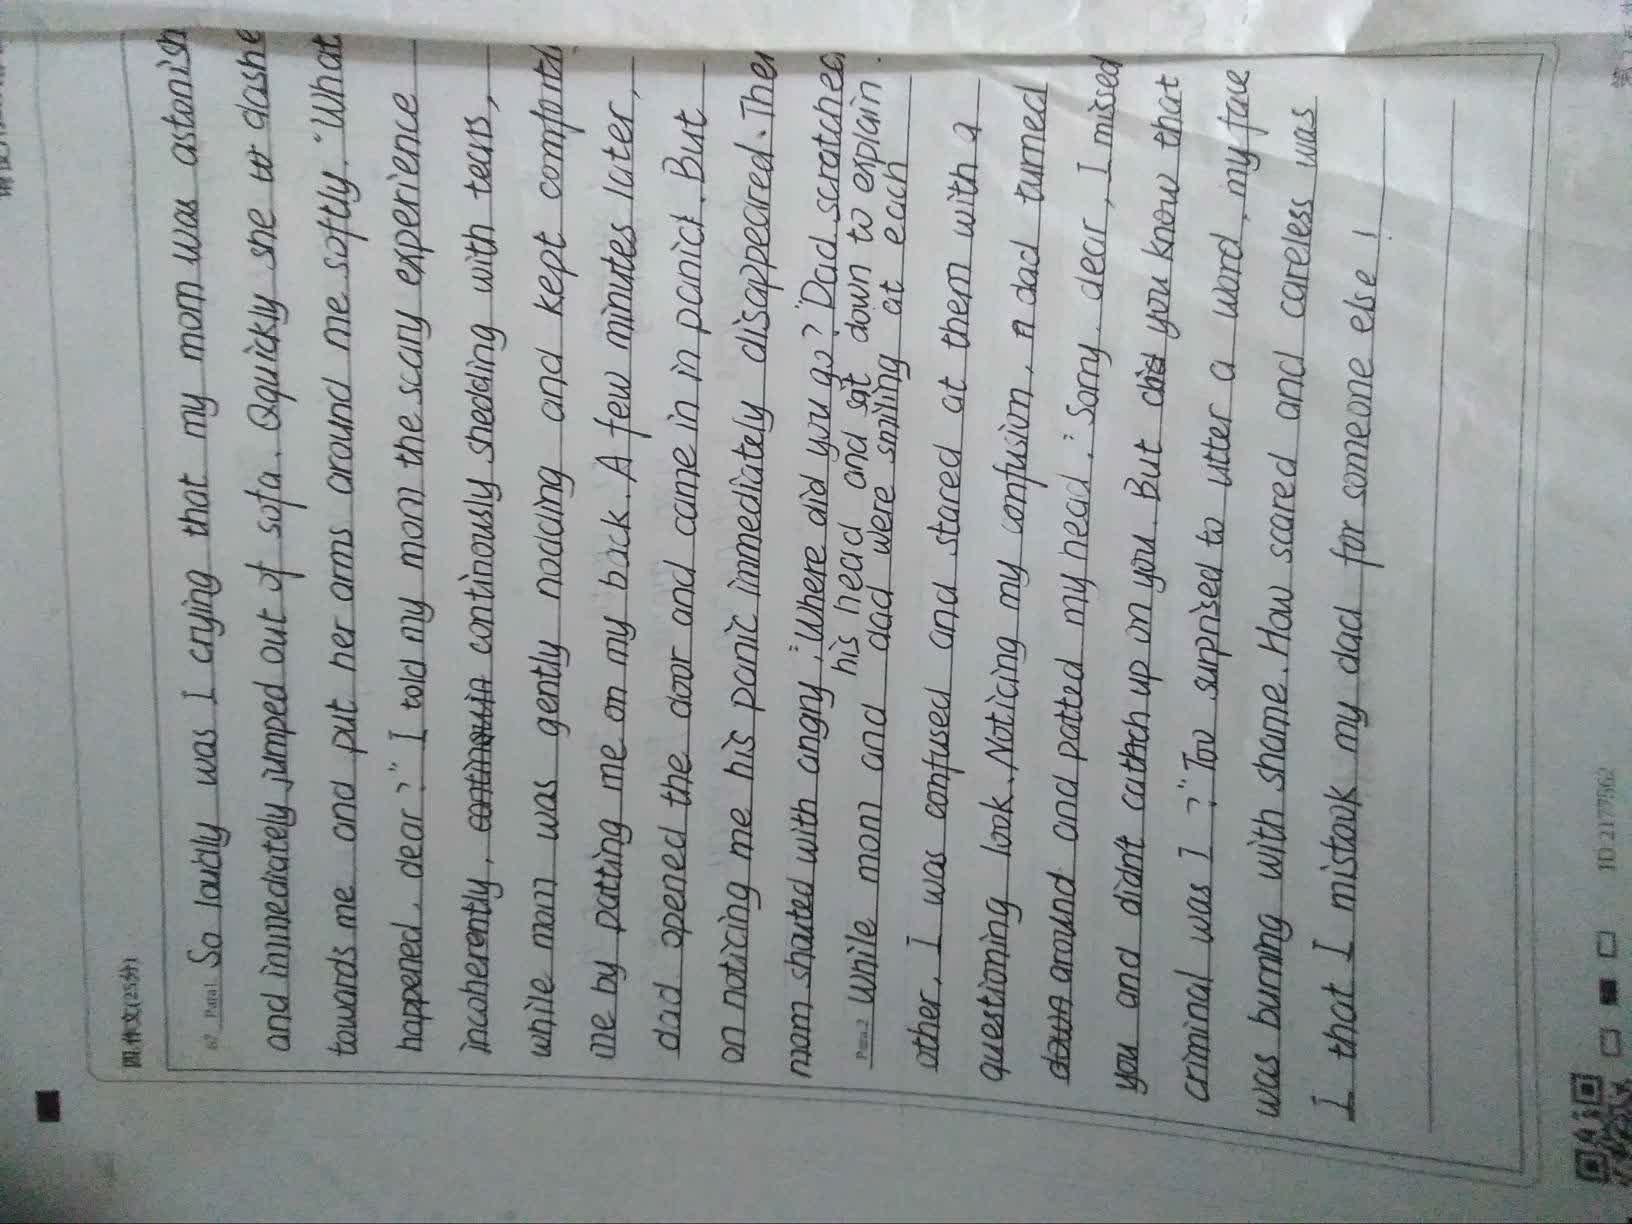 四.作文(25分)
67 Para1 So loudly was I crying that my mom was astonish
and immediately jumped out of sofa. Qquickly she to dashe
towards me and put her arms around me softly. "What
happened, dear?" I told my mom the scary experience
incoherently, continuously shedding with tears,
while mom was gently nodding and kept comforti
me by patting me on my back. A few minutes later,
dad opened the door and came in in panick. But
on noticing me his panic immediately disappeared. Then
mom shouted with angry: "Where did you go?" Dad scratched
his head and sat down to explain.
Para2 While mom and dad were smiling at each
other, I was confused and stared at them with a
questioning look. Noticing my confusion, dad turned
around and patted my head: "Sorry, dear, I missed
you and didn't catch up on you. But did you know that
criminal was I?" Too surprised to utter a word, my face
was burning with shame. How scared and careless was
I that I mistook my dad for someone else!
ID 2177562